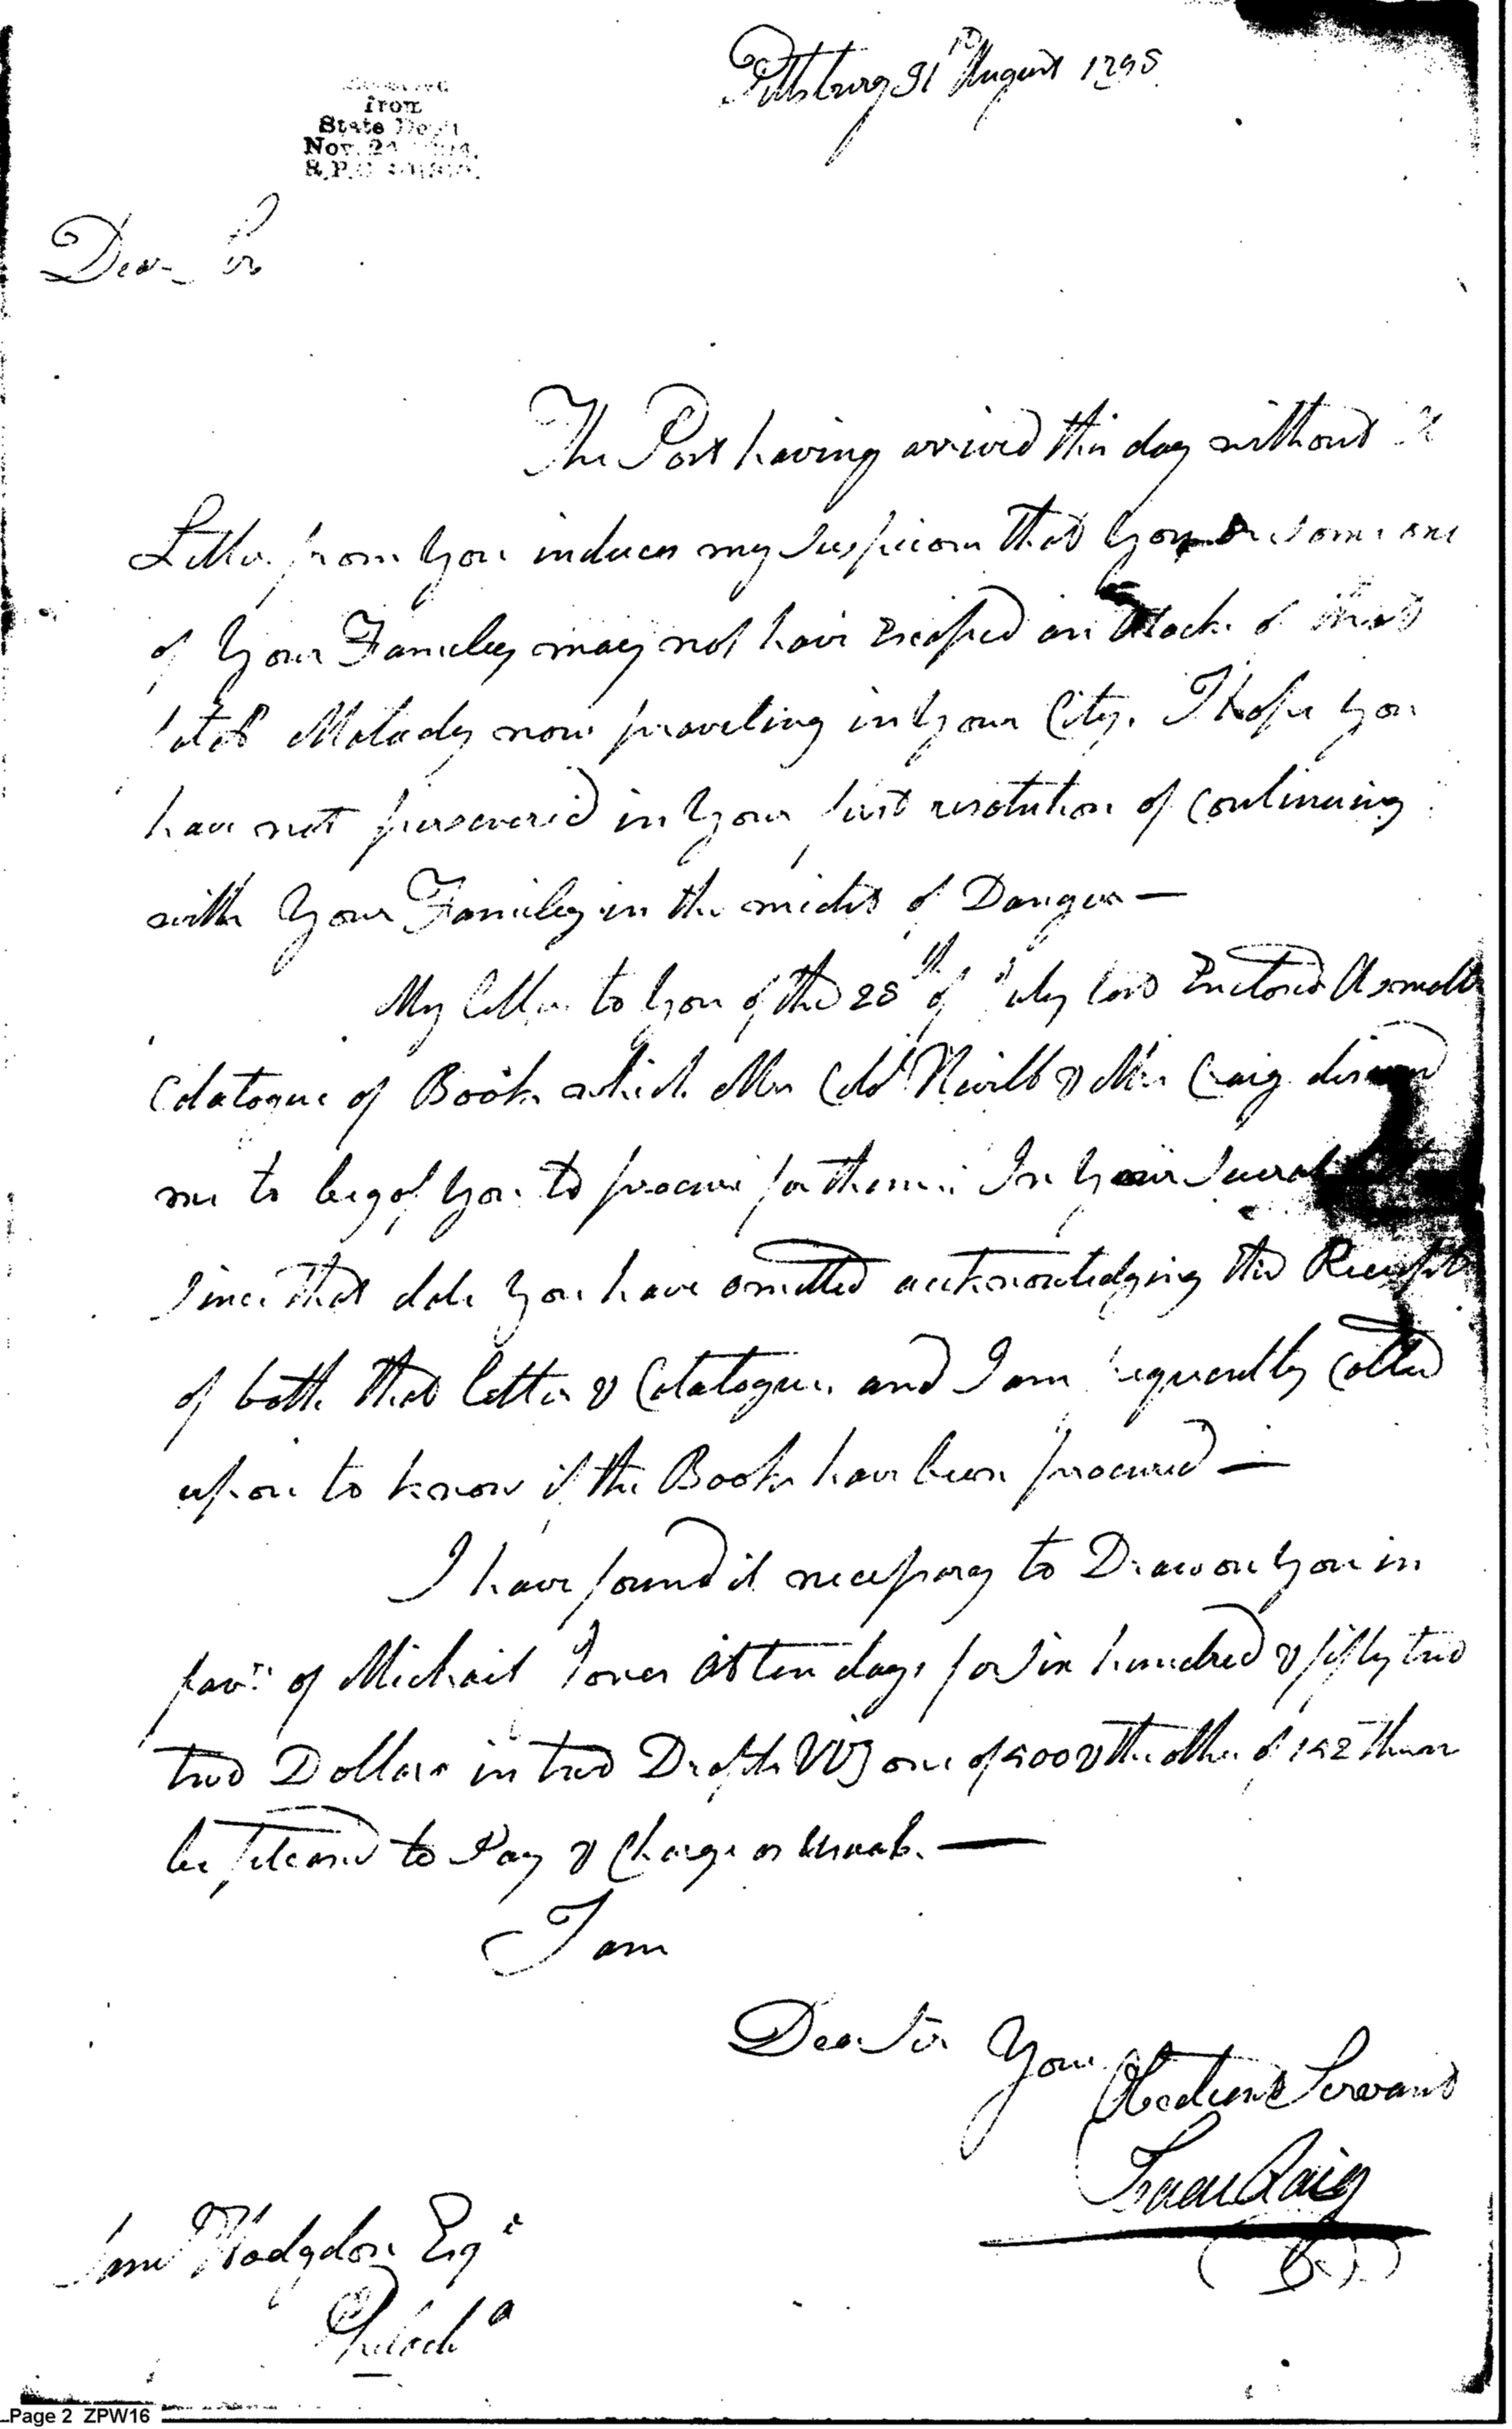 Pittsburg 31st August 1798
from
State Dept
Nov. 24
Dear Sir
The Post having arrived this day without a
Letter from You induces my Suspicion that You or some one
of Your Family may not have Escaped an Attack of that
fatal Malady now prevailing in Your City. I Hope You
have not persevered in Your first resolution of Continuing
with Your Family in the midst of Danger —
My letter to You of the 28th of July last Enclosed A small
Catalogue of Books which Mrs Colo Nevill & Mrs Craig desired
me to beg of You to procure for them. In Your Several
Since that date You have omitted acknowledging the Receipt
of both that letter & Catalogue. and I am frequently Called
upon to know if the Books have been procured —
I have found it necessary to Draw on You in
favr. of Michail Jones At ten days for Six hundred & fifty two
two Dollars in two Drafts Viz one of 500 & the other of 152 them
be pleased to Pay & Charge as Usual. —
I am
Dear Sir Your
Obedient Servant
Isaac Craig
Saml Hodgdon Esqr
Philada
Page 2 ZPW16